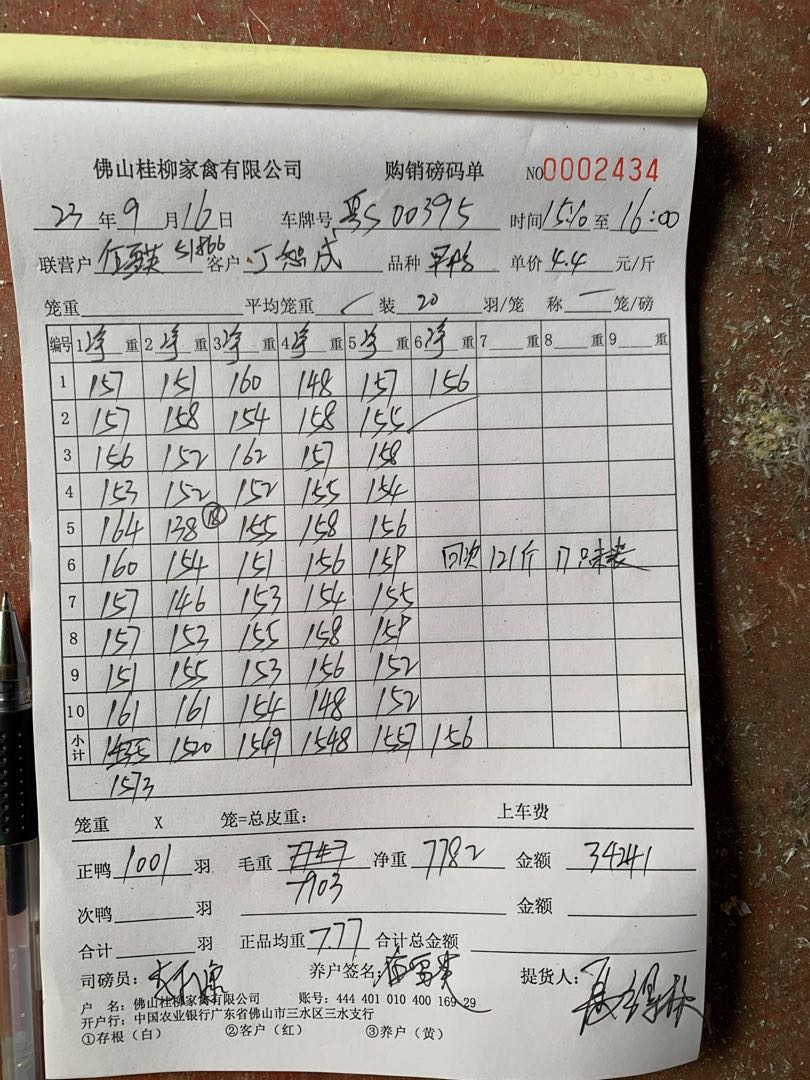 佛山桂柳家禽有限公司 购销磅码单 NO0002434
23年9月16日 车牌号 粤S00395 时间15:10至16:00
联营户 51866 客户 丁 成 品种 单价4.4元/斤
笼重 平均笼重 装20羽/笼 称一笼/磅
编号 1净重 2净重 3净重 4净重 5净重 6净重 7重 8重 9重
1 157 151 160 148 157 156
2 157 158 154 158 155
3 156 152 162 157 158
4 153 152 152 155 154
5 164 138 ⑱ 155 158 156
6 160 154 151 156 159 回次 121斤 17只未装
7 157 146 153 154 155
8 157 153 155 158 159
9 151 155 153 156 152
10 161 161 154 148 152
小计 1520 1549 1548 1557 156
1573
笼重 X 笼=总皮重: 上车费
正鸭1001羽 毛重 净重7782 金额34241
7903
次鸭 羽 金额
合计 羽 正品均重7.77 合计总金额
司磅员: 养户签名: 提货人:
户 名: 佛山桂柳家禽有限公司 账号: 444 401 010 400 169 29
开户行: 中国农业银行广东省佛山市三水区三水支行
①存根(白) ②客户(红) ③养户(黄)